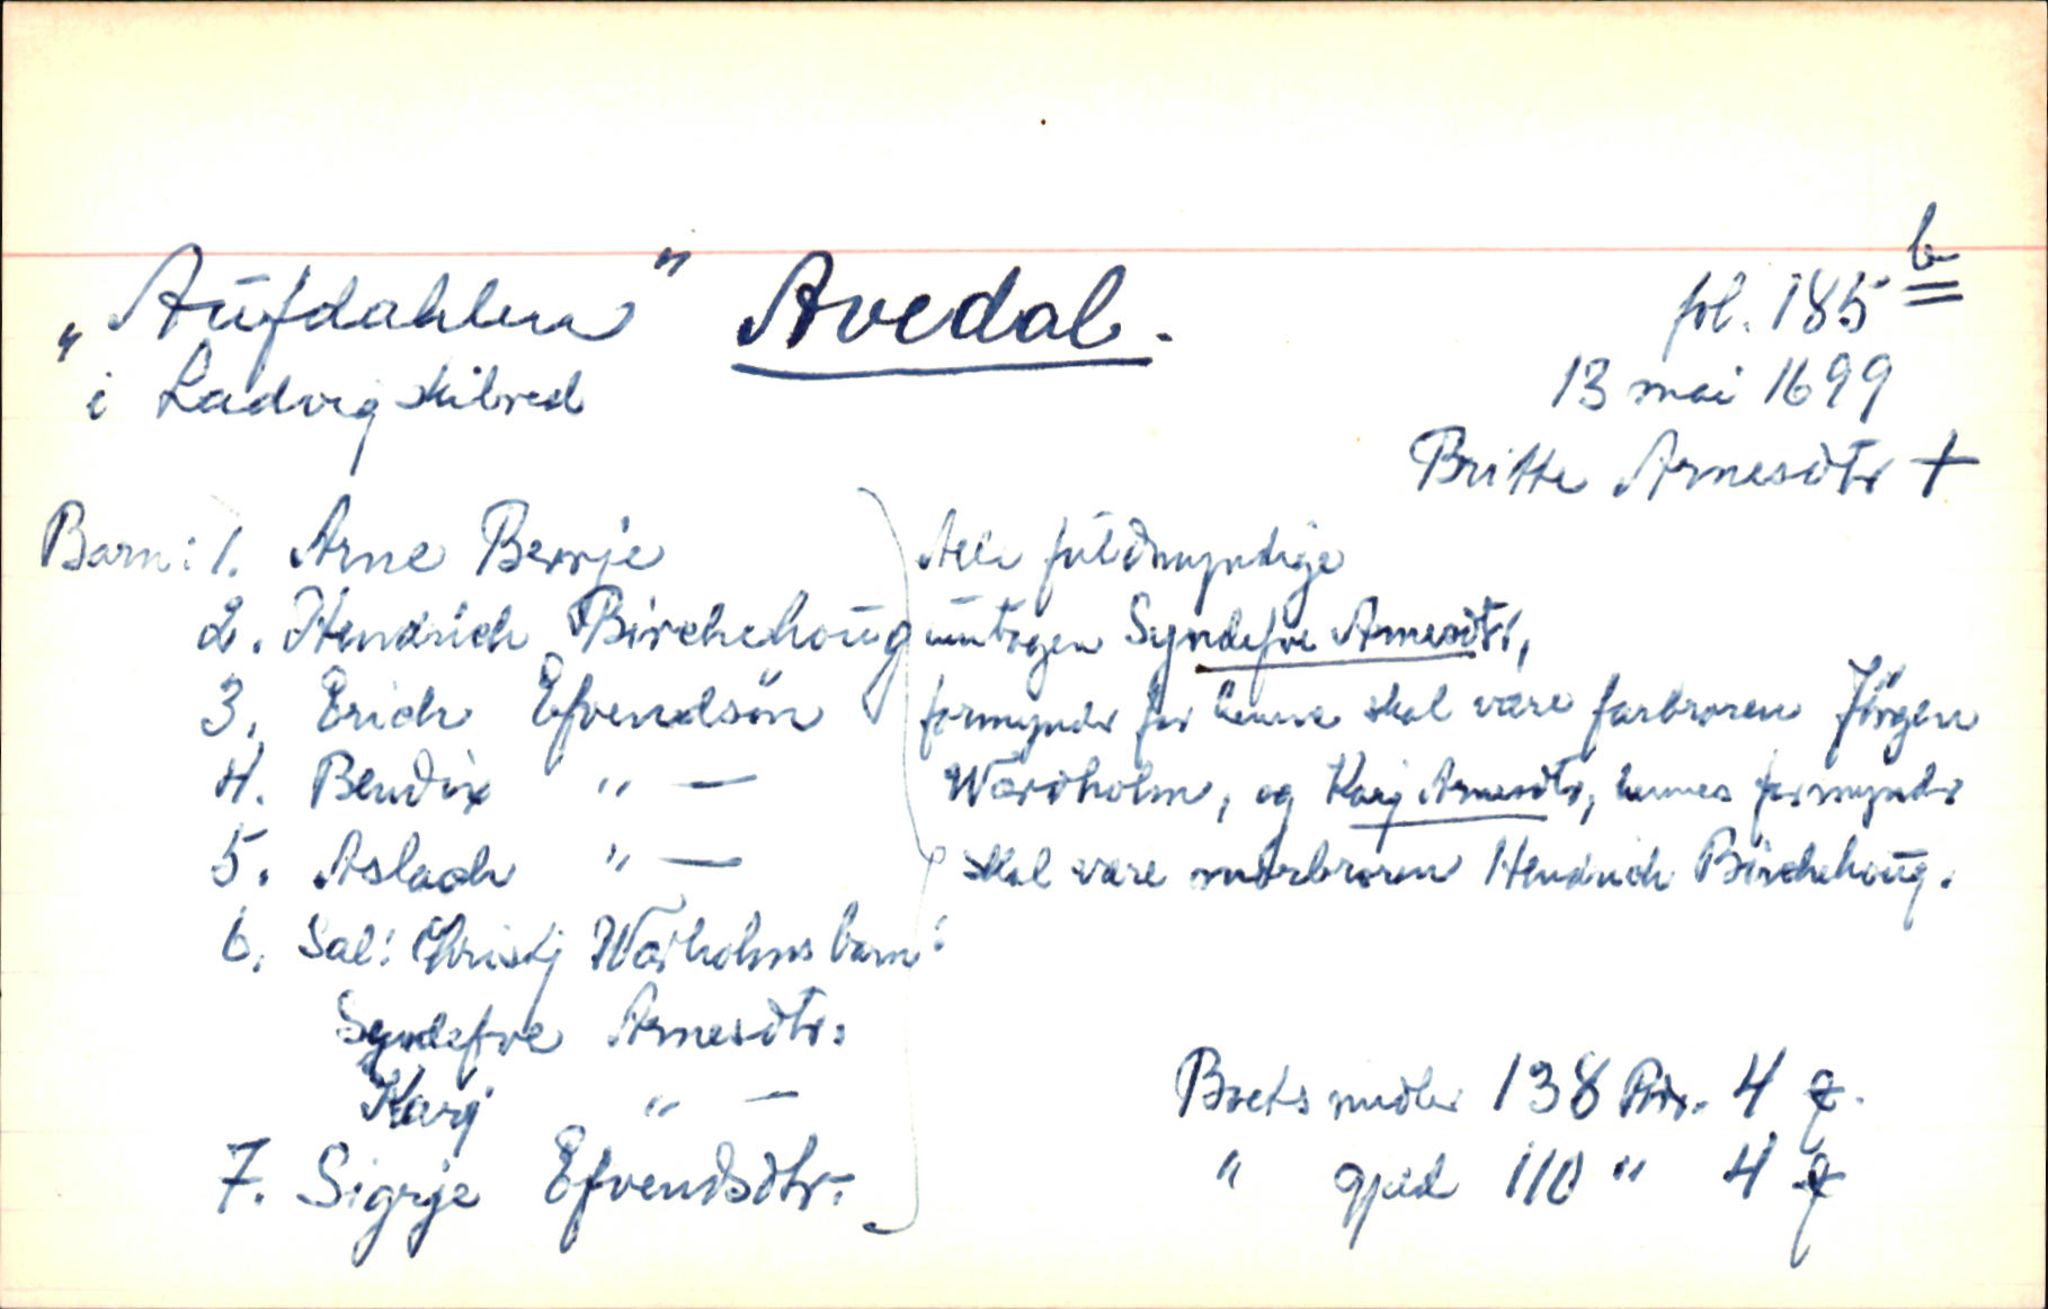 „Aufdahlen" Avedal. fol. 185 b
i Ladvig skibred 13 mai 1699
Britte Arnesdtr +
Barn: 1. Arne Berrje Alle fuldmyndige
2. Hendrich Birchehoug untagen Syndefve Arnesdtr,
3. Erich Efvendsön formynder for henne skal være farbroren Jörgen
4. Bendix " — Wardholm, og Karj Arnesdtr, hennes formynder
5. Aslach " — skal være morbroren Hendrich Birchehoug.
6. Sal: Christj Warholms barn:
Syndefve Arnesdtr.
Karj " — Boets midler 138 Rdr. 4 ꝗ.
7. Sigrje Efvendsdtr. " gjeld 110 " 4 ꝗ